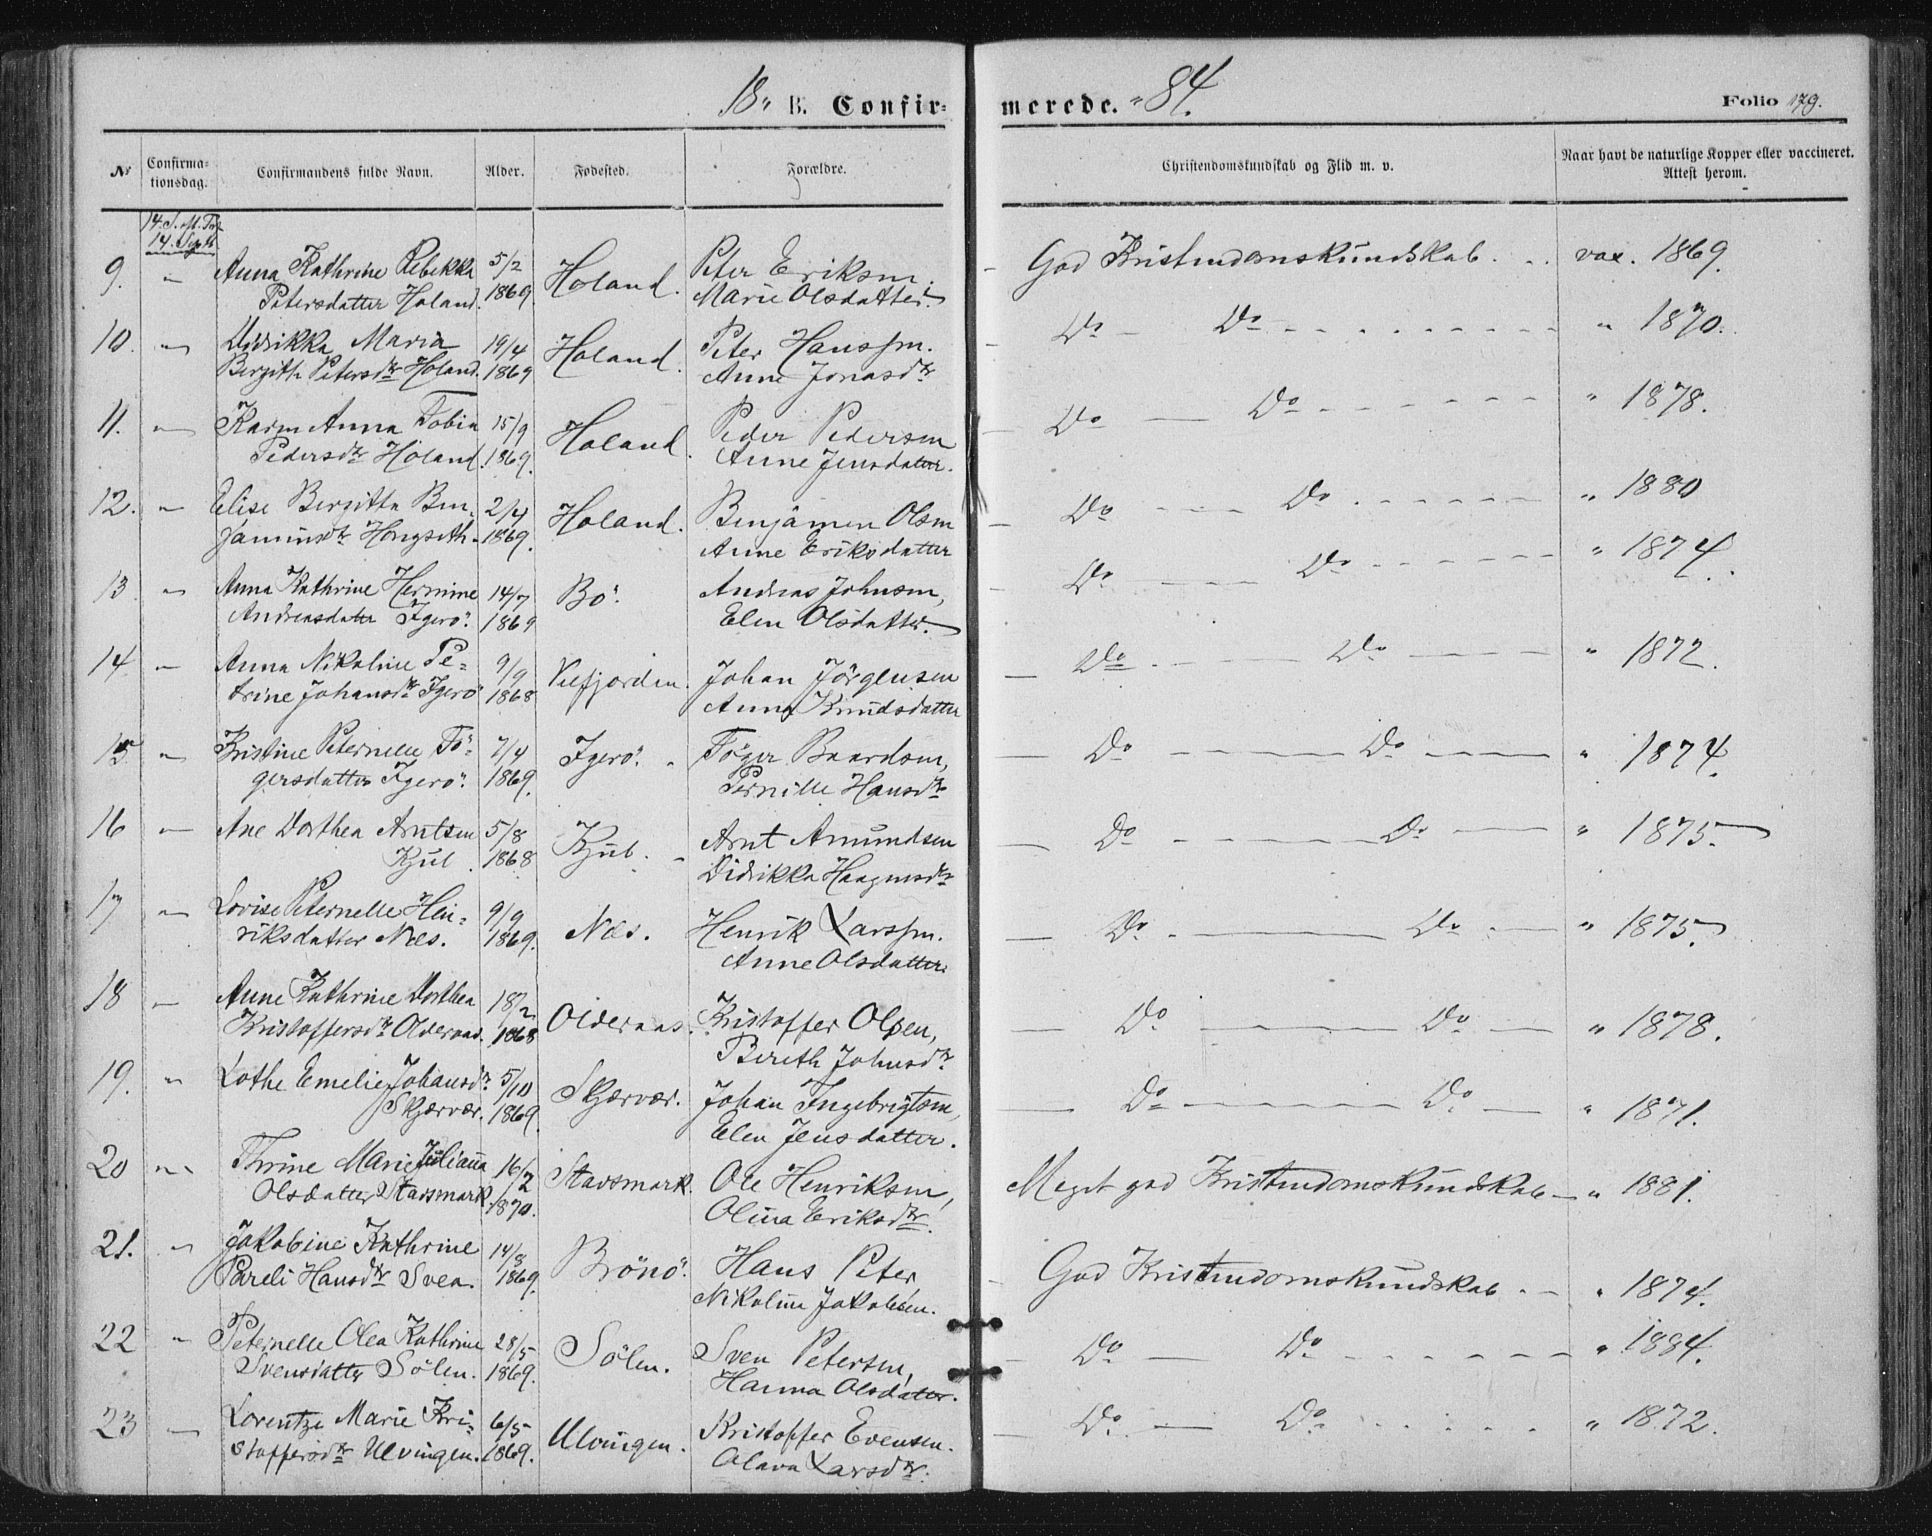 18 " B. Confir= merede. " 84. Folio 179.
No Confirma=tionsdag. Confirmandens fulde Navn. Alder. Fødested. Forældre. Christendomskundskab og Flid m. v. Naar havt de naturlige Kopper eller vaccineret. Attest herom.
14. S. e. Tr.
14. Septb
9. " Anna Kathrine Rebekka 5/2 Holand. Peter Eriksen, God Kristendomskundskab. vax. 1869.
Petersdatter Holand. 1869. Marie Olsdatter.
10. " Didrikka Maria 19/4 Holand. Peter Hanssen. Do Do " 1870.
Bergith Petersdtr Holand. 1869 Anne Jonasdtr
11. " Karen Anna Tobia 15/9 Holand. Peder Pedersen Do Do " 1878.
Pedersdtr Holand. 1869. Anne Jensdatter.
12. " Elise Bergitta Ben- 2/4 Holand. Benjamen Olsen Do Do " 1880
jaminsdtr Hongseth 1869. Anne Eriksdatter
13. " Anna Kathrine Hermine 14/7 Bö. Andreas Johnsen, Do Do " 1874.
Andreasdatter Igerö. 1869 Elen Olsdatter.
14. " Anna Nikoline Pe= 9/9 Vefjorden. Johan Jörgensen Do Do " 1872.
trine Johansdtr Igerö 1868 Anna Knudsdatter
15. " Kristine Peternelle Tö= 7/4 Igerö. Töger Baardsen, Do Do " 1874.
gersdatter Igerö. 1869. Pernille Hansdtr
16 " Ane Dorthea Arntsen 5/8 Kjul. Arnt Amundsen Do Do " 1875.
Kjul. 1868 Didrikka Haagensdtr
17 " Lovise Peternelle Hen= 9/9 Næs. Henrik Larssen. Do Do " 1875.
riksdatter Næs. 1869. Anne Olsdatter.
18 " Anne Kathrine Dorthea 18/2 Olderaas. Kristoffer Olsen, Do Do " 1878.
Kristoffersdtr Olderaas. 1868 Bereth Johnsdtr
19. " Lothe Emelie Johansdtr 5/10 Skjærvær. Johan Ingebrigtsen, Do Do " 1871.
Skjærvær. 1869. Elen Jensdatter.
20 " Thrine Marie Juliana 16/2 Stavsmark. Ole Henriksen, Meget god Kristendomskundskab " 1881.
Olsdatter Stavsmark. 1870. Olina Eriksdtr.
21. " Jakobine Kathrine 14/8 Brönö. Hans Peter God Kristendomskundskab " 1874.
Pareli Hansdtr Sven. 1869. Nikoline Jakobsen.
22 " Peternelle Olea Kathrine 28/5 Sölen. Sven Petersen, Do Do " 1884.
Svensdatter Sölen. 1869. Hanna Olsdatter.
23 " Lorentze Marie Kri= 6/5 Ulvingen. Kristoffer Evensen. Do Do " 1872.
stoffersdtr Ulvingen. 1869. Olava Larsdtr.